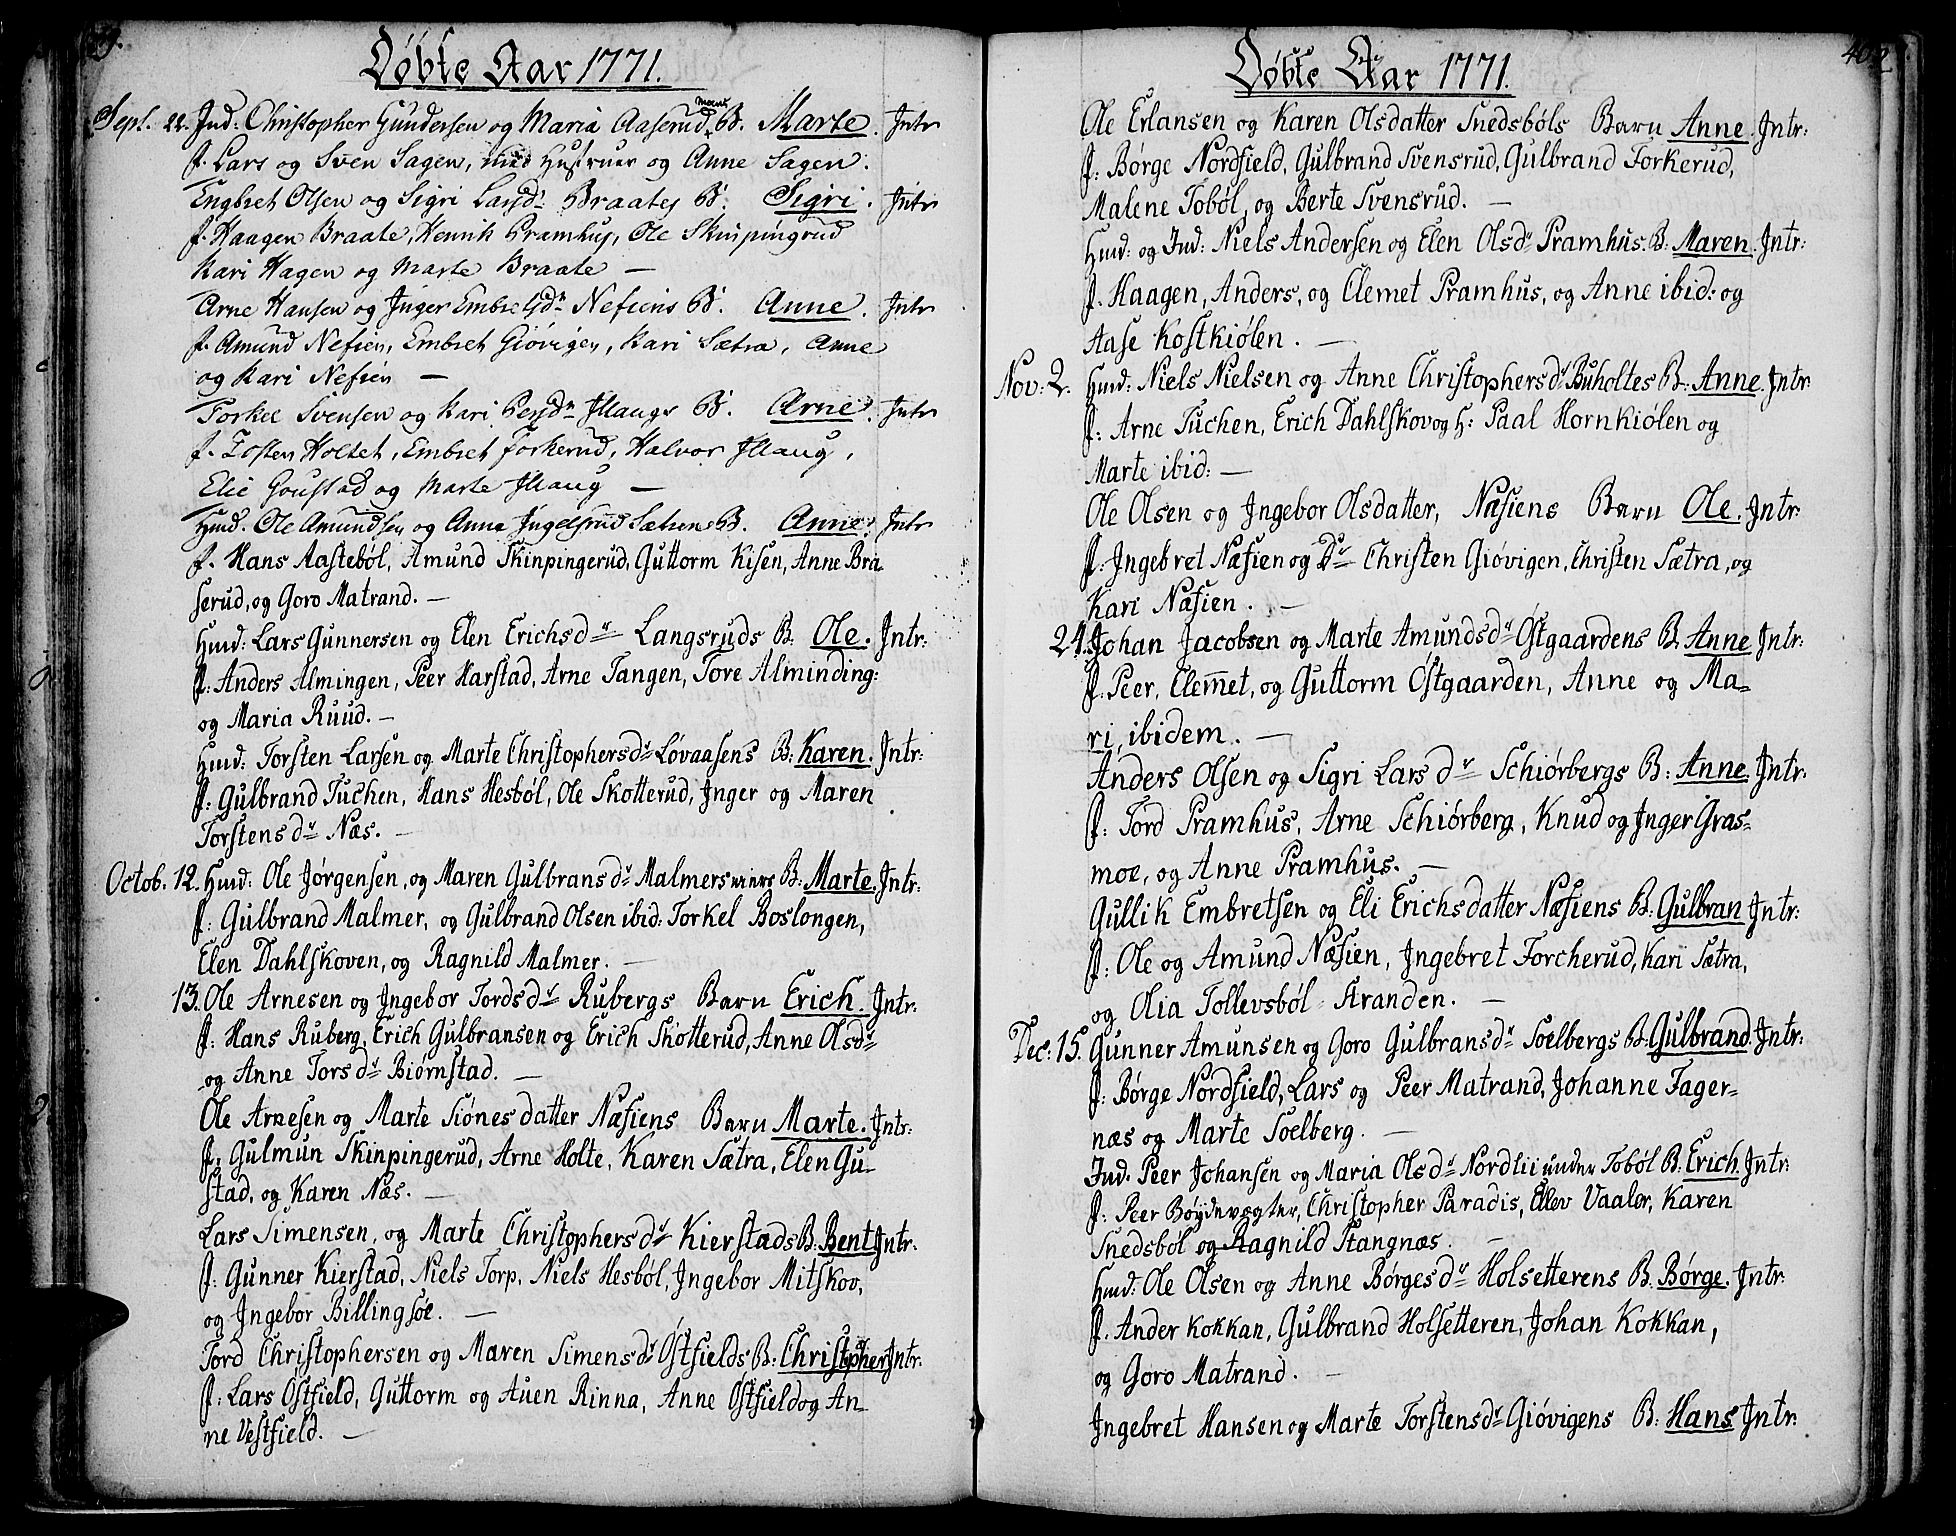 39.
Döbte Aar 1771.
Sept. 22. Ind: Christopher Gundersen og Maria Aaserud moens B. Marte. Intr
F. Lars og Sven Sagen, med Hustruer og Anne Sagen.
Engbret Olsen og Sigri Larsdr Braates B. Sigri. Intr
F. Haagen Braate, Henrik Pramhus, Ole Skinpingrud
Kari Hagen og Marte Braate —
Arne Hansen og Inger Embretsdr Nefiens B. Anne. Intr
F. Amund Nefien, Embret Giövigen, Kari Sætra, Anne
og Kari Nefien —
Torkel Svensen og Kari Persdr Illaugs B. Arne. Intr
F. Tosten Holtet, Embret Forkerud, Halvor Illaug,
Elie Goustad og Marte Illaug —
Hmd. Ole Amundsen og Anna Ingelsrud Sætrens B. Anne. Intr
F. Hans Aastebøl, Amund Skinpingerud, Guttorm Kisen, Anne Bra
serud, og Goro Matrand. —
Hmd: Lars Gunnersen og Elen Erichsdr Langsruds B. Ole. Intr:
F: Anders Almingen, Peer Harstad, Arne Tangen, Tore Alminding:
og Maria Ruud. —
Hmd: Torsten Larsen og Marte Christophersdr Løvaasens B: Karen. Intr:
F: Gulbrand Tuchen, Hans Hesbøl, Ole Skotterud, Inger og Maren
Torstensdr Næs. —
Octob. 12. Hmd: Ole Jørgensen, og Maren Gulbransdr Malmers B: Marte. Intr:
F: Gulbrand Malmer, og Gulbrand Olsen ibid: Torkel Boslongen,
Elen Dahlskoven, og Ragnild Malmer. —
13. Ole Arnesen og Ingebor Tordsdr Rubergs Barn Erich. Intr:
F: Hans Ruberg, Erich Gulbransen og Erich Skotterud, Anne Olsdr
og Anne Torsdr Biørnstad. —
Ole Arnesen og Marte Siónes datter Næfiens Barn Marte. Intr:
F. Gulmun Skinpingerud, Arne Holte, Karen Sætra, Elen Gu-
stad, og Karen Næs. —
Lars Simensen, og Marte Christophersdr Kierstads B: Bent Intr.
F: Gunner Kierstad, Niels Torp, Niels Hesbøl, Ingebor Mitskov,
og Ingebor Billingsøe. —
Tord Christophersen og Maren Simensdr Østfields B: Christopher Intr:
F: Lars Østfield, Guttorm og Auen Rinna, Anne Østfield og An-
ne Vestfield. —
402
Döbte Aar 1771.
Ole Erlansen og Karen Olsdatter Snedsbøls Barn Anne. Intr:
F: Børge Nordfield, Gulbrand Svensrud, Gulbrand Forkerud,
Malene Tobøl, og Berte Svensrud. —
Hmd: og Ind: Niels Andersen og Elen Olsdr Pramhus. B: Maren. Intr:
F. Haagen, Anders, og Clemet Pramhus, og Anne ibid: og
Aase Kostkiølen. —
Nov: 2. Hmd: Niels Nielsen og Anne Christophersdr Buholtes B: Anne. Intr
F: Arne Tuchen, Erich Dahlskov og H: Paal Hornkiølen og
Marte ibid: —
Ole Olsen og Ingebor Olsdatter, Næfiens Barn Ole. Intr:
F: Ingebret Næfien og Dr Christen Giövigen, Christen Sætra, og
Kari Næfien. —
24. Johan Jacobsen og Marte Amundsdr Østgaardens B. Anne Intr:
F. Peer, Clemet, og Guttorm Østgaarden, Anne og Ma-
ri, ibidem. —
Anders Olsen og Sigri Larsdr Schiörbergs B: Anne Intr:
F: Tord Pramhus, Arne Schiörberg, Knud og Inger Gras-
moe, og Anne Pramhus. —
Gullik Embretsen og Eli Erichsdatter Næfiens B: Gulbran Intr:
F: Ole og Amund Næfien, Ingebret Forcherud, Kari Sætra,
og Olia Tollevsbøl-Stranden. —
Dec: 15. Gunner Amunsen og Goro Gulbransdr Soelbergs B: Gulbrand. Intr:
F: Børge Nordfield, Lars og Peer Matrand, Johanne Fager-
næs og Marte Soelberg. —
Ind. Peer Johansen og Maria Olsdr Nordlii under Tobøl B. Erich. Intr:
F: Peer Bøydevogter, Christopher Paradis, Ellev Vaaler, Karen
Snedsbøl og Ragnild Stangnæs. —
Hmd: Ole Olsen og Anne Børgesdr Holsetterens B. Børge. Intr:
F. Ander Kokkan, Gulbrand Holsetteren, Johan Kokkan,
og Goro Matrand. —
Ingebret Hansen og Marte Torstensdr Giövigens B: Hans Intr: